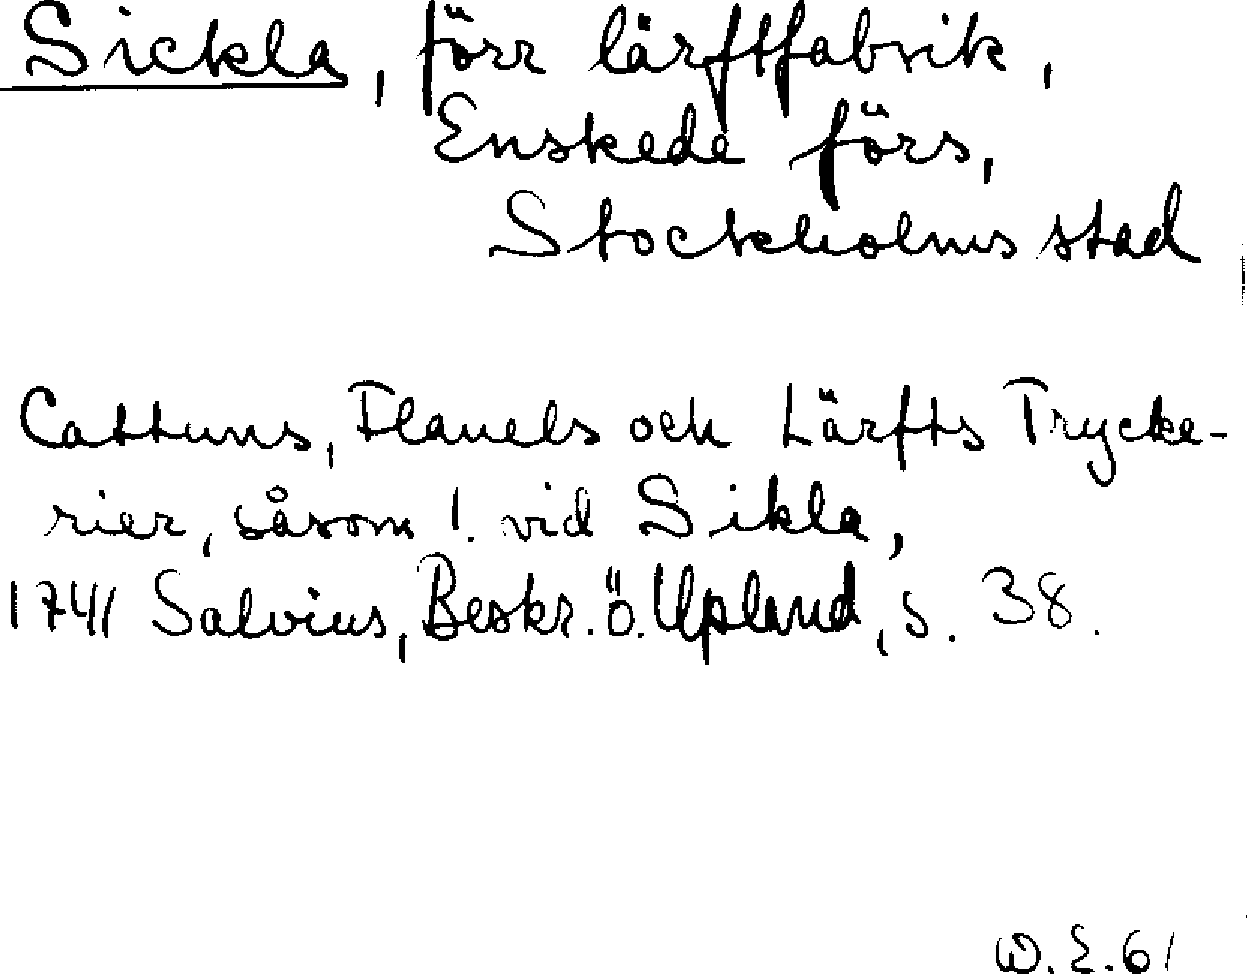 Sickla, förr lärftfabrik,
Enskede förs,
Stockholms stad
Cattuns, Flanels och Lärfts Trycke-
rier, såsom 1. vid Sikla,
1741 Salvius, Beskr. ö. Upland, s. 38.
W. E. 61